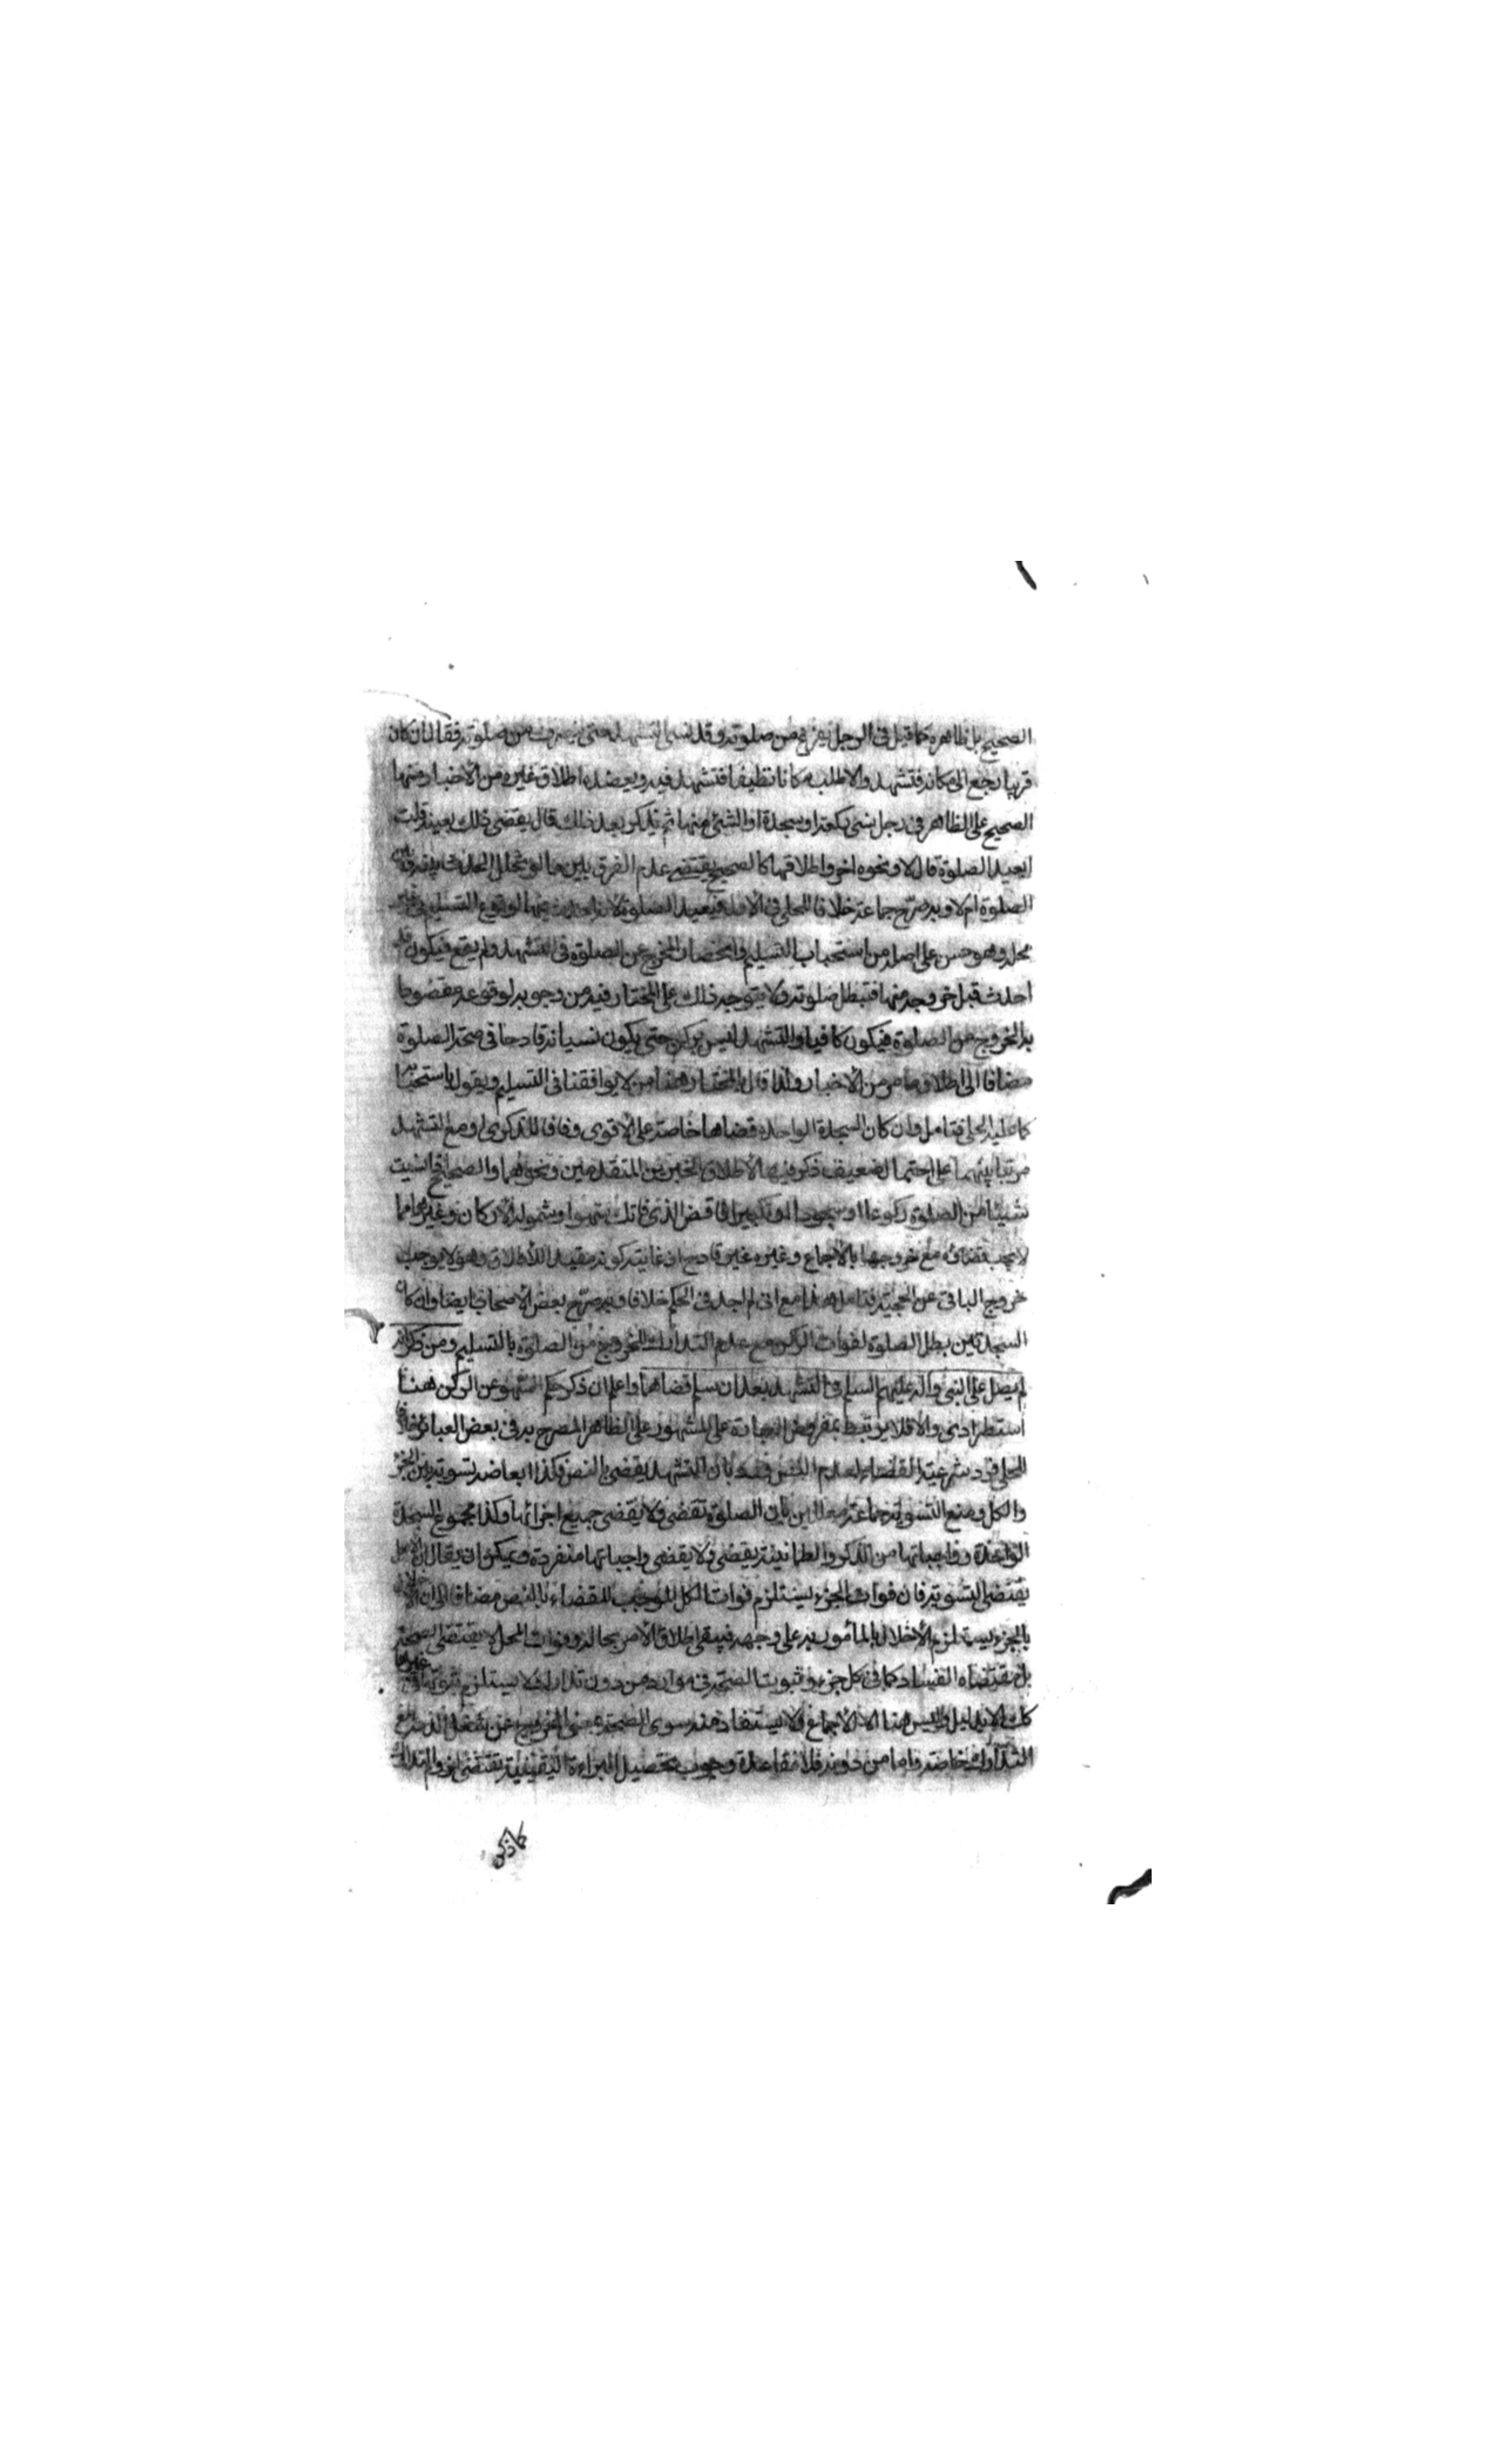 الصحيح بل ظاهره كما قيل في الرجل يفرغ من صلوته وقد نسي التشهد حتى ينصرف من صلوته فقال ان كان
قريبا رجع الى مكانه فتشهد والا طلب مكانا نظيفا فتشهد فيه ويعضده اطلاق غيره من الاخبار منها
الصحيح على الظاهر في رجل نسي ركعة او سجدة او الشئ منها ثم تذكر بعد ذلك قال يقضي ذلك بعينه قلت
ايعيد الصلوة قال لا ونحوه اخر واطلاقها كالصحيح يقتضي عدم الفرق بين ما لو تخلل الحدث بينه وبين
الصلوة ام لا وبه صرح جماعة خلافا للحلي في الاول فيعيد الصلوة لانه احدث فيها لوقوع التسليم في غير
محله وهو حسن على اصله من استحباب التسليم وانحصار المخرج عن الصلوة في التشهد ولم يقع فيكون قد
احدث قبل خروجه منها فتبطل صلوته ولا يتوجه ذلك على المختار فيه من وجوبه لوقوعه مقصودا
به الخروج من الصلوة فيكون كافيا والتشهد ليس بركن حتى يكون نسيانه قادحا في صحة الصلوة
مضافا الى اطلاق ما مر من الاخبار ولذا قال بالمختار هنا من لا يوافقنا في التسليم ويقول باستحبابه
كما عليه الحلي فتامل وان كان السجدة الواحدة قضاها خاصة على الاقوى وفاقا للذكرى او مع التشهد
مرتبا بينهما على احتمال ضعيف ذكر فيها لاطلاق الخبرين المتقدمين ونحوهما والصحيح اذا نسيت
شيئا من الصلوة ركوعا او سجودا او تكبيرا فاقض الذي فاتك سهوا وشموله لاركان وغيرها مما
لا يجب قضاؤه مع خروجها بالاجماع وغيره غير قادح اذ غايته كونه مقيدا للاطلاق وهو لا يوجب
خروج الباقي عن الحجية فتامل هذا مع اني لم اجد في الحكم خلافا وبه صرح بعض الاصحاب ايضا وان كان
السجدتين بطل الصلوة لفوات الركن مع عدم التدارك للخروج من الصلوة بالتسليم ومن ذكر انه
لم يصل على النبي واله عليهم السلم في التشهد بعد ان سلم قضاهما واعلم ان ذكر حكم السهو عن الركن هنا
استطرادي والا فلا يرتبط بمفروض العبارة على المشهور على الظاهر المصرح به في بعض العبائر خلافا
للحلي فرد شرعية القضاء لعدم النص فيه بان التشهد يقضي بالنص فكذا ابعاضه تسوية بين الجزء
والكل ومنع التسوية جماعة معللين بان الصلوة تقضى ولا يقضى جميع اجزائها وكذا مجموع السجدة
الواحدة وواجباتها من الذكر والطمانينة يقضى ولا يقضى واجباتها منفردة ويمكن ان يقال ان الاصل
يقتضي التسوية فان فوات الجزء يستلزم فوات الكل الموجب للقضاء بالنص مضافا الى ان
بالجزء يستلزم الاخلال بالمأمور به على وجهه فيبقى اطلاق الامر بحاله وفوات المحل لا يقتضي صحته
بل مقتضاه الفساد كما في كل جزء وثبوت الصحة في موارد من دون تدارك لا يستلزم ثبوتها في غيرها
كك الا بدليل وليس هنا الا الاجماع ولا يستفاد منه سوى الصحة بمعنى الخروج عن شغل الذمة مع
التدارك خاصة واما من دونه فلا فقاعدة وجوب تحصيل البراءة اليقينية تقتضي لزوم التدارك
كما ذكر